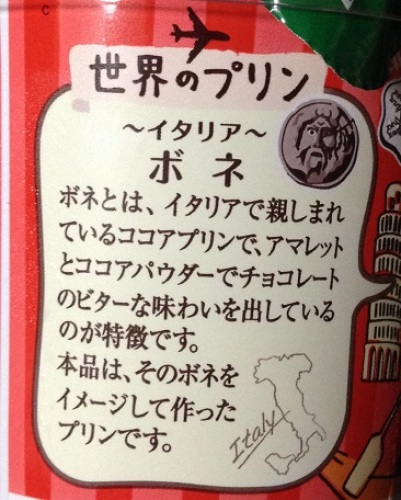 C
世界のプリン
～イタリア～
ボネ
ボネとは、イタリアで親しまれ
ているココアプリンで、アマレット
とココアパウダーでチョコレート
のビターな味わいを出している
のが特徴です。
本品は、そのボネを
イメージして作った
プリンです。
Italy